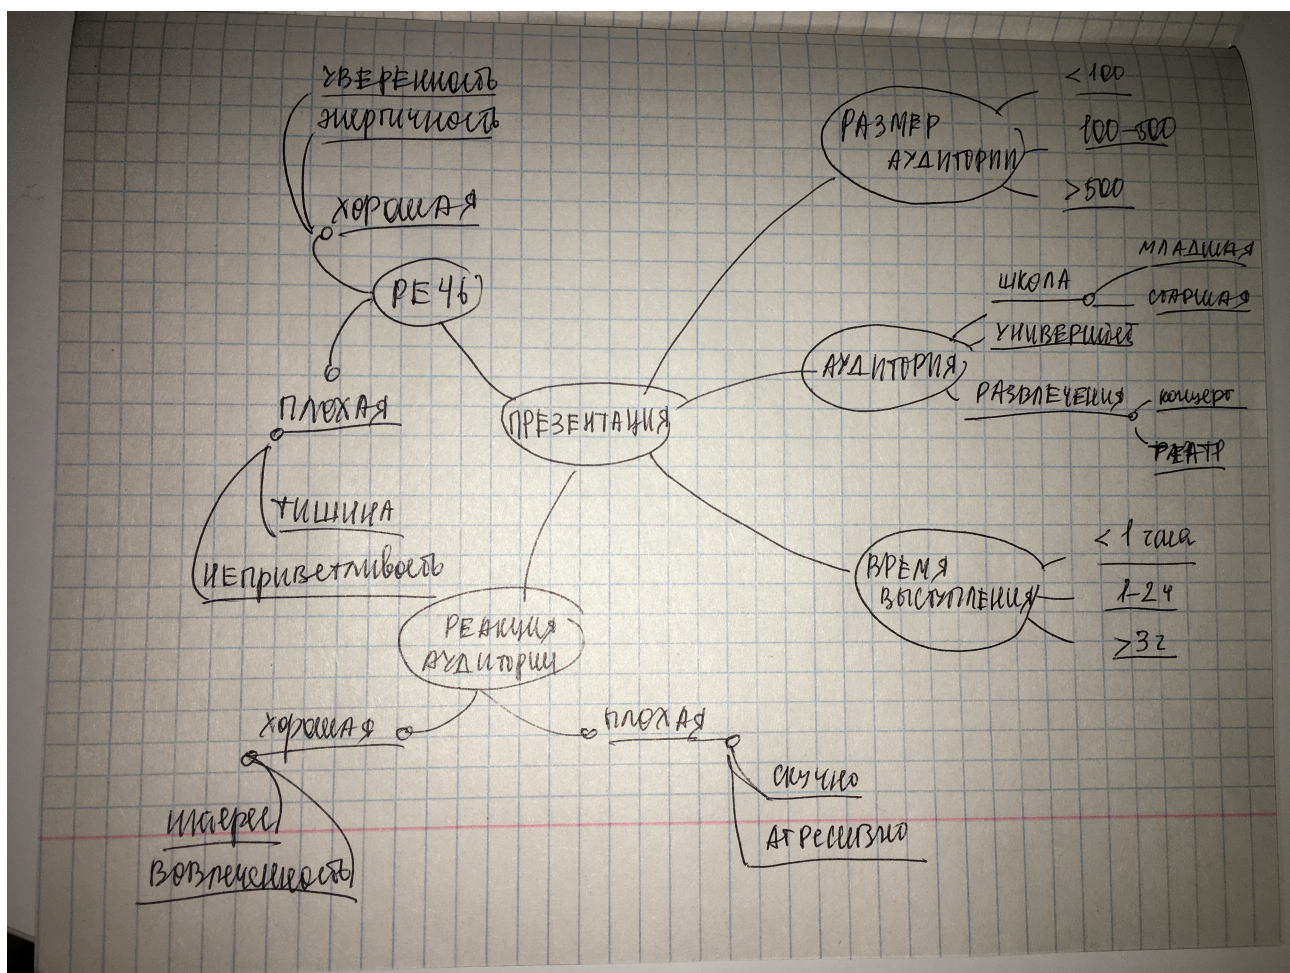 УВЕРЕННОСТЬ
ЭНЕРГИЧНОСТЬ
ХОРОШАЯ
РЕЧЬ
ПЛОХАЯ
ТИШИНА
НЕПРИВЕТЛИВОСТЬ
ПРЕЗЕНТАЦИЯ
РАЗМЕР
АУДИТОРИИ
< 100
100-500
>500
АУДИТОРИЯ
ШКОЛА
МЛАДШАЯ
СТАРШАЯ
УНИВЕРСИТЕТ
РАЗВЛЕЧЕНИЯ
концерт
ТЕАТР
ВРЕМЯ
ВЫСТУПЛЕНИЯ
< 1 часа
1-2ч
>3ч
РЕАКЦИЯ
АУДИТОРИИ
ХОРОШАЯ
интерес
ВОВЛЕЧЕННОСТЬ
ПЛОХАЯ
СКУЧНО
АГРЕСИВНО